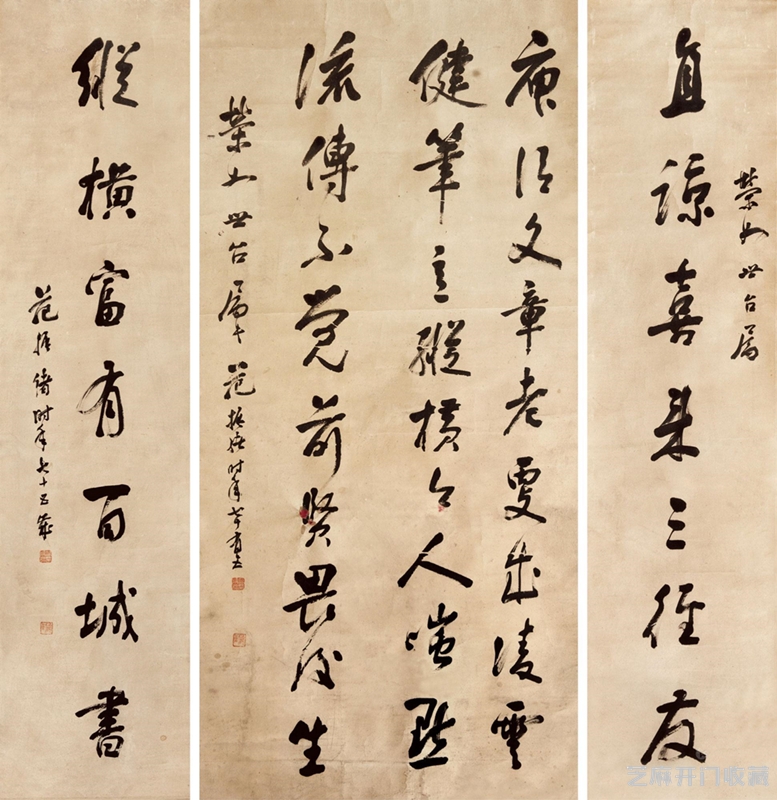 榮如世台屬
直諒喜來三徑友
庾信文章老更成凌雲
健筆意縱橫今人嗤點
流傳不覺前賢畏後生
榮如世台屬 范振緒時年七十有五
縱橫富有百城書
范振緒時年七十五歲
芝麻开门收藏